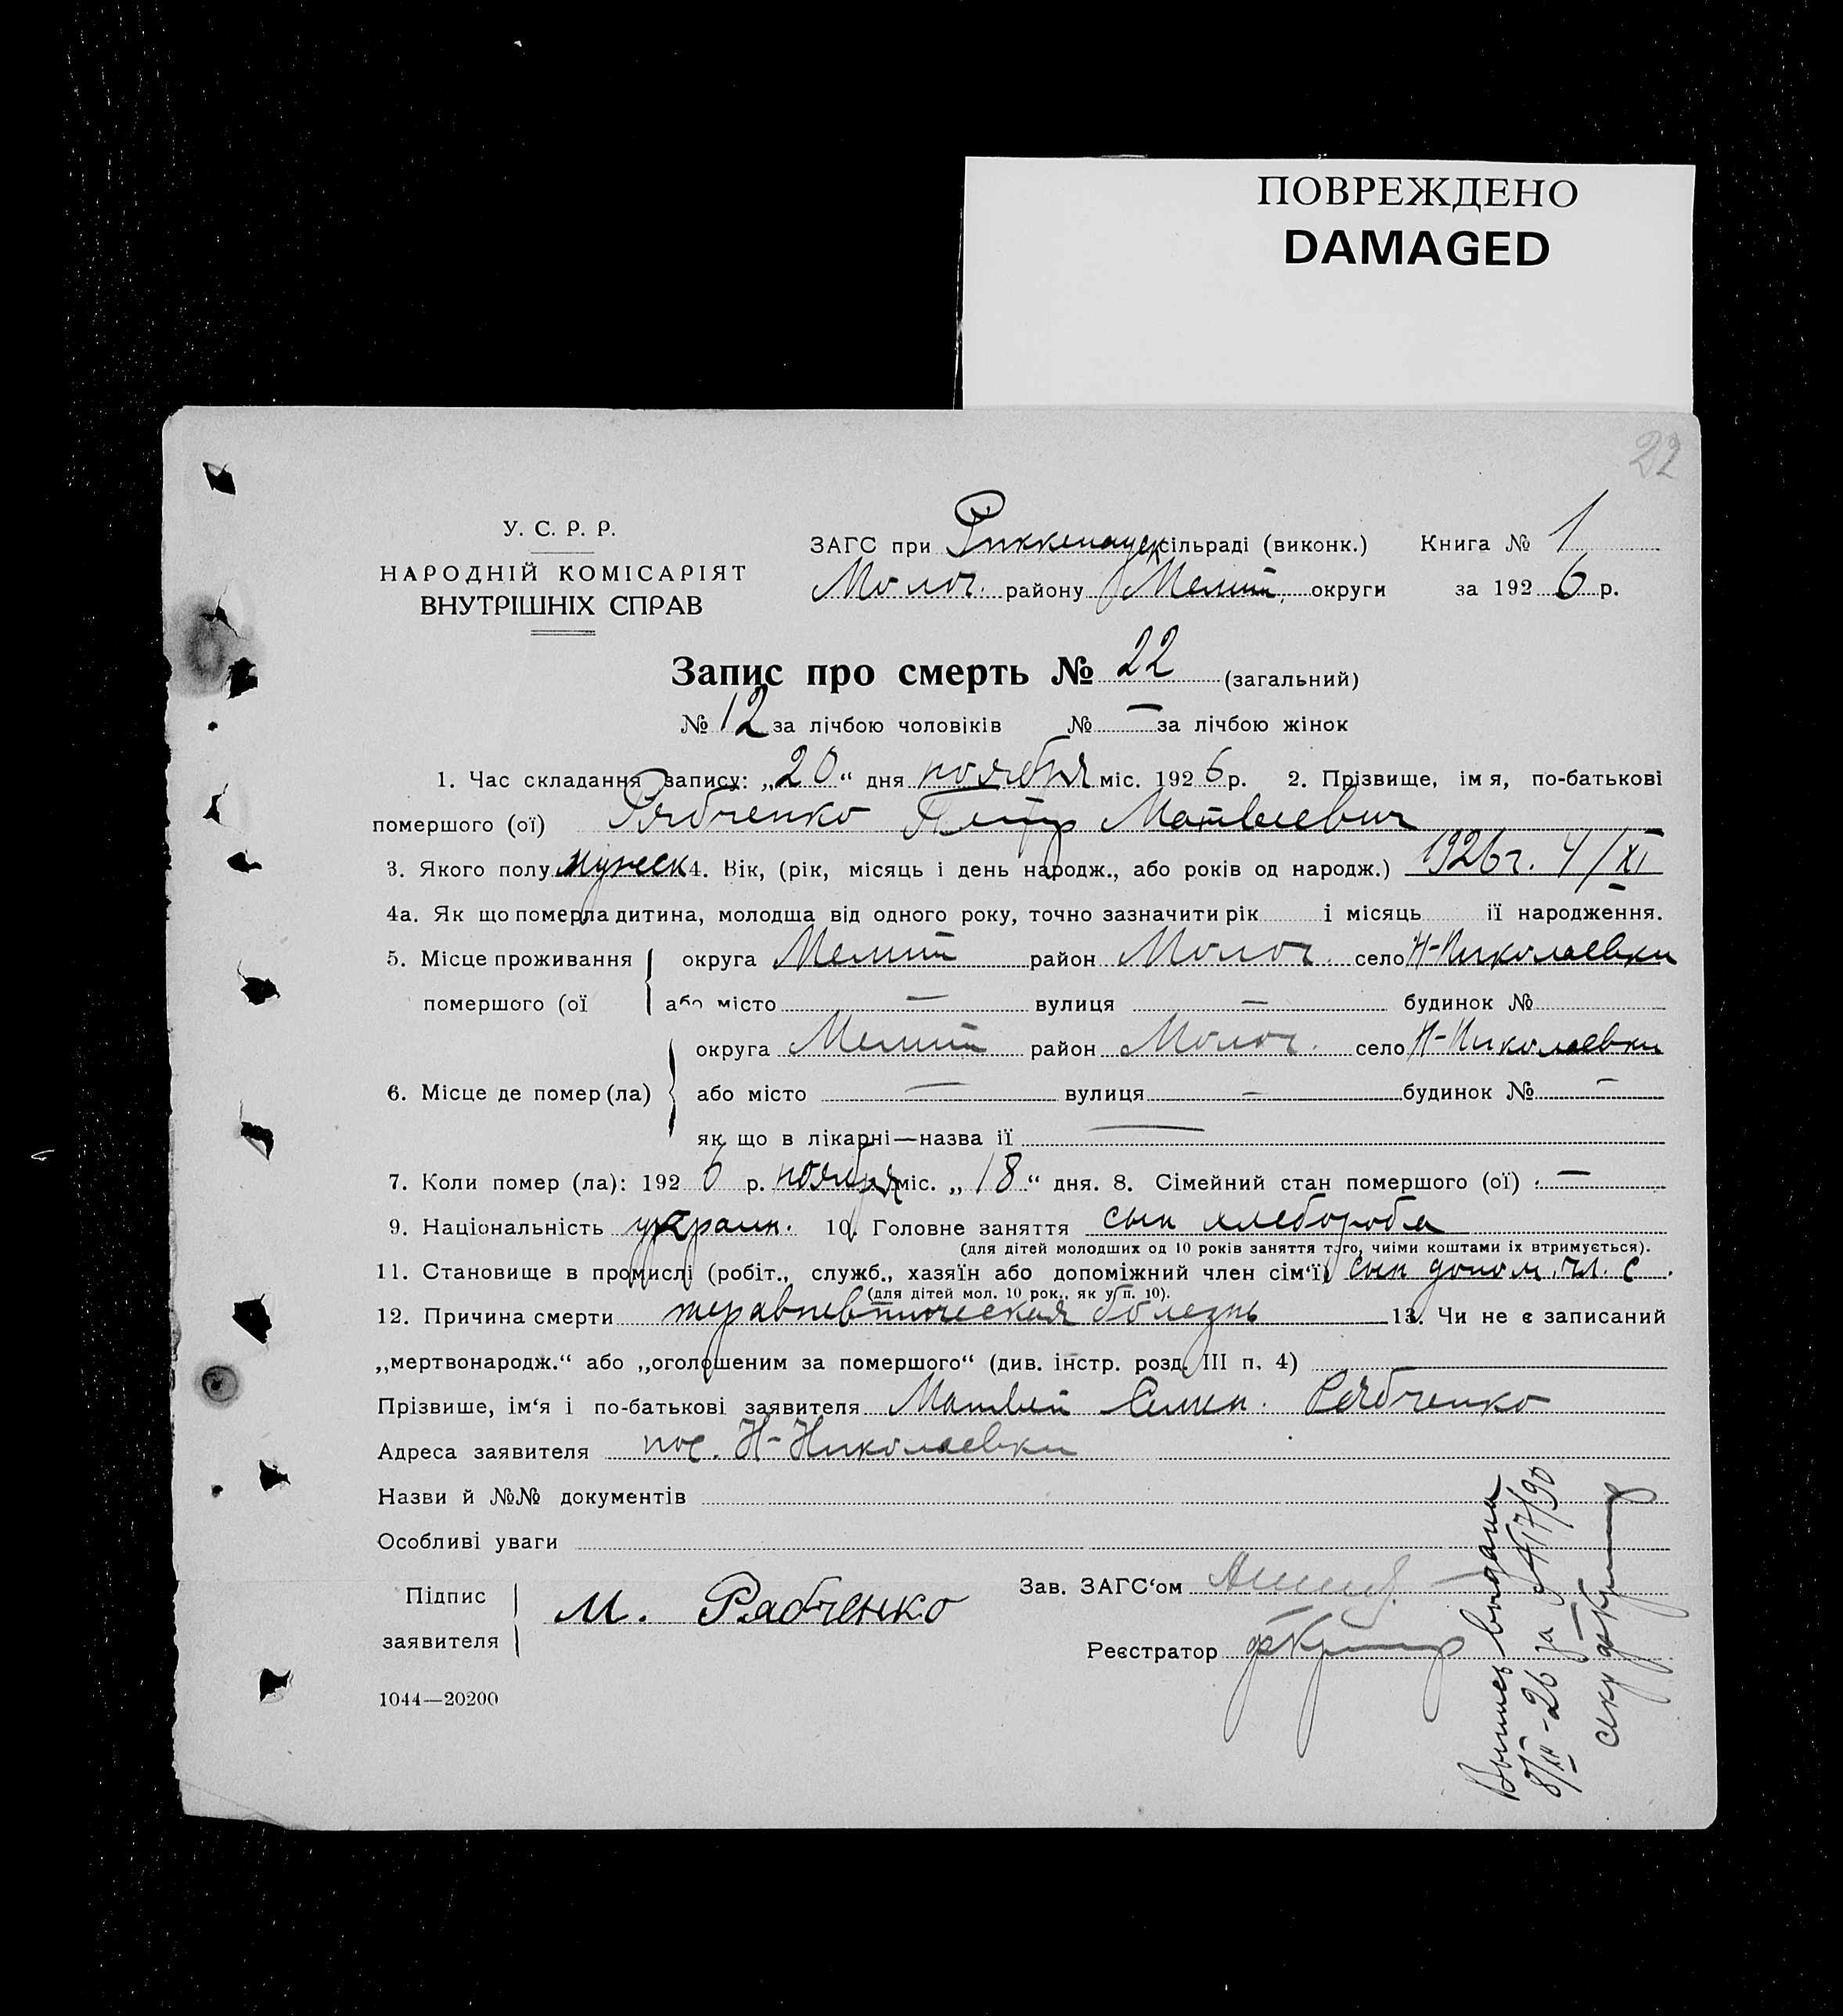 ПОВРЕЖДЕНО
DAMAGED
22
У. С. Р. Р.
НАРОДНІЙ КОМІСАРІЯТ
ВНУТРІШНІХ СПРАВ
ЗАГС при Риккенауск сільраді (виконк.) Книга № 1
Молоч. району Мелит. округи за 1926 р.
Запис про смерть № 22 (загальний)
№ 12 за лічбою чоловіків № — за лічбою жінок
1. Час складання запису: „20“ дня ноября міс. 1926 р. 2. Прізвище, імя, по-батькові
помершого (ої) Рябченко Петр Матвеевич
3. Якого полу мужеск 4. Вік, (рік, місяць і день народж., або років од народж.) 1926 г. 4/XI
4а. Як що померла дитина, молодша від одного року, точно зазначити рік і місяць її народження.
5. Місце проживання округа Мелит район Молоч. село Н-Николаевки
помершого (ої або місто — вулиця — будинок №
округа Мелит район Молоч. село Н-Николаевки
6. Місце де помер (ла) або місто — вулиця — будинок № —
як що в лікарні—назва її —
7. Коли помер (ла): 1926 р. ноября міс. „18“ дня. 8. Сімейний стан помершого (ої) —
9. Національність украин. 10. Головне заняття сын хлебороба
(для дітей молодших од 10 років заняття того, чиїми коштами їх втримується).
11. Становище в промислі (робіт., служб., хазяїн або допоміжний член сім'ї) сын допом. чл. с.
(для дітей мол. 10 рок., як у п. 10).
12. Причина смерти болезнь 13. Чи не є записаний
„мертвонародж.“ або „оголошеним за помершого“ (див. інстр. розд. III п. 4)
Прізвише, ім‘я і по-батькові заявителя Матвей Семен. Рябченко
Адреса заявителя пос. Н-Николаевки
Назви й №№ документів
Особливі уваги
Підпис
заявителя М. Рябченко
Зав. ЗАГС‘ом
Реєстратор
1044—20200
Выпись выдана
8/XII-26 за